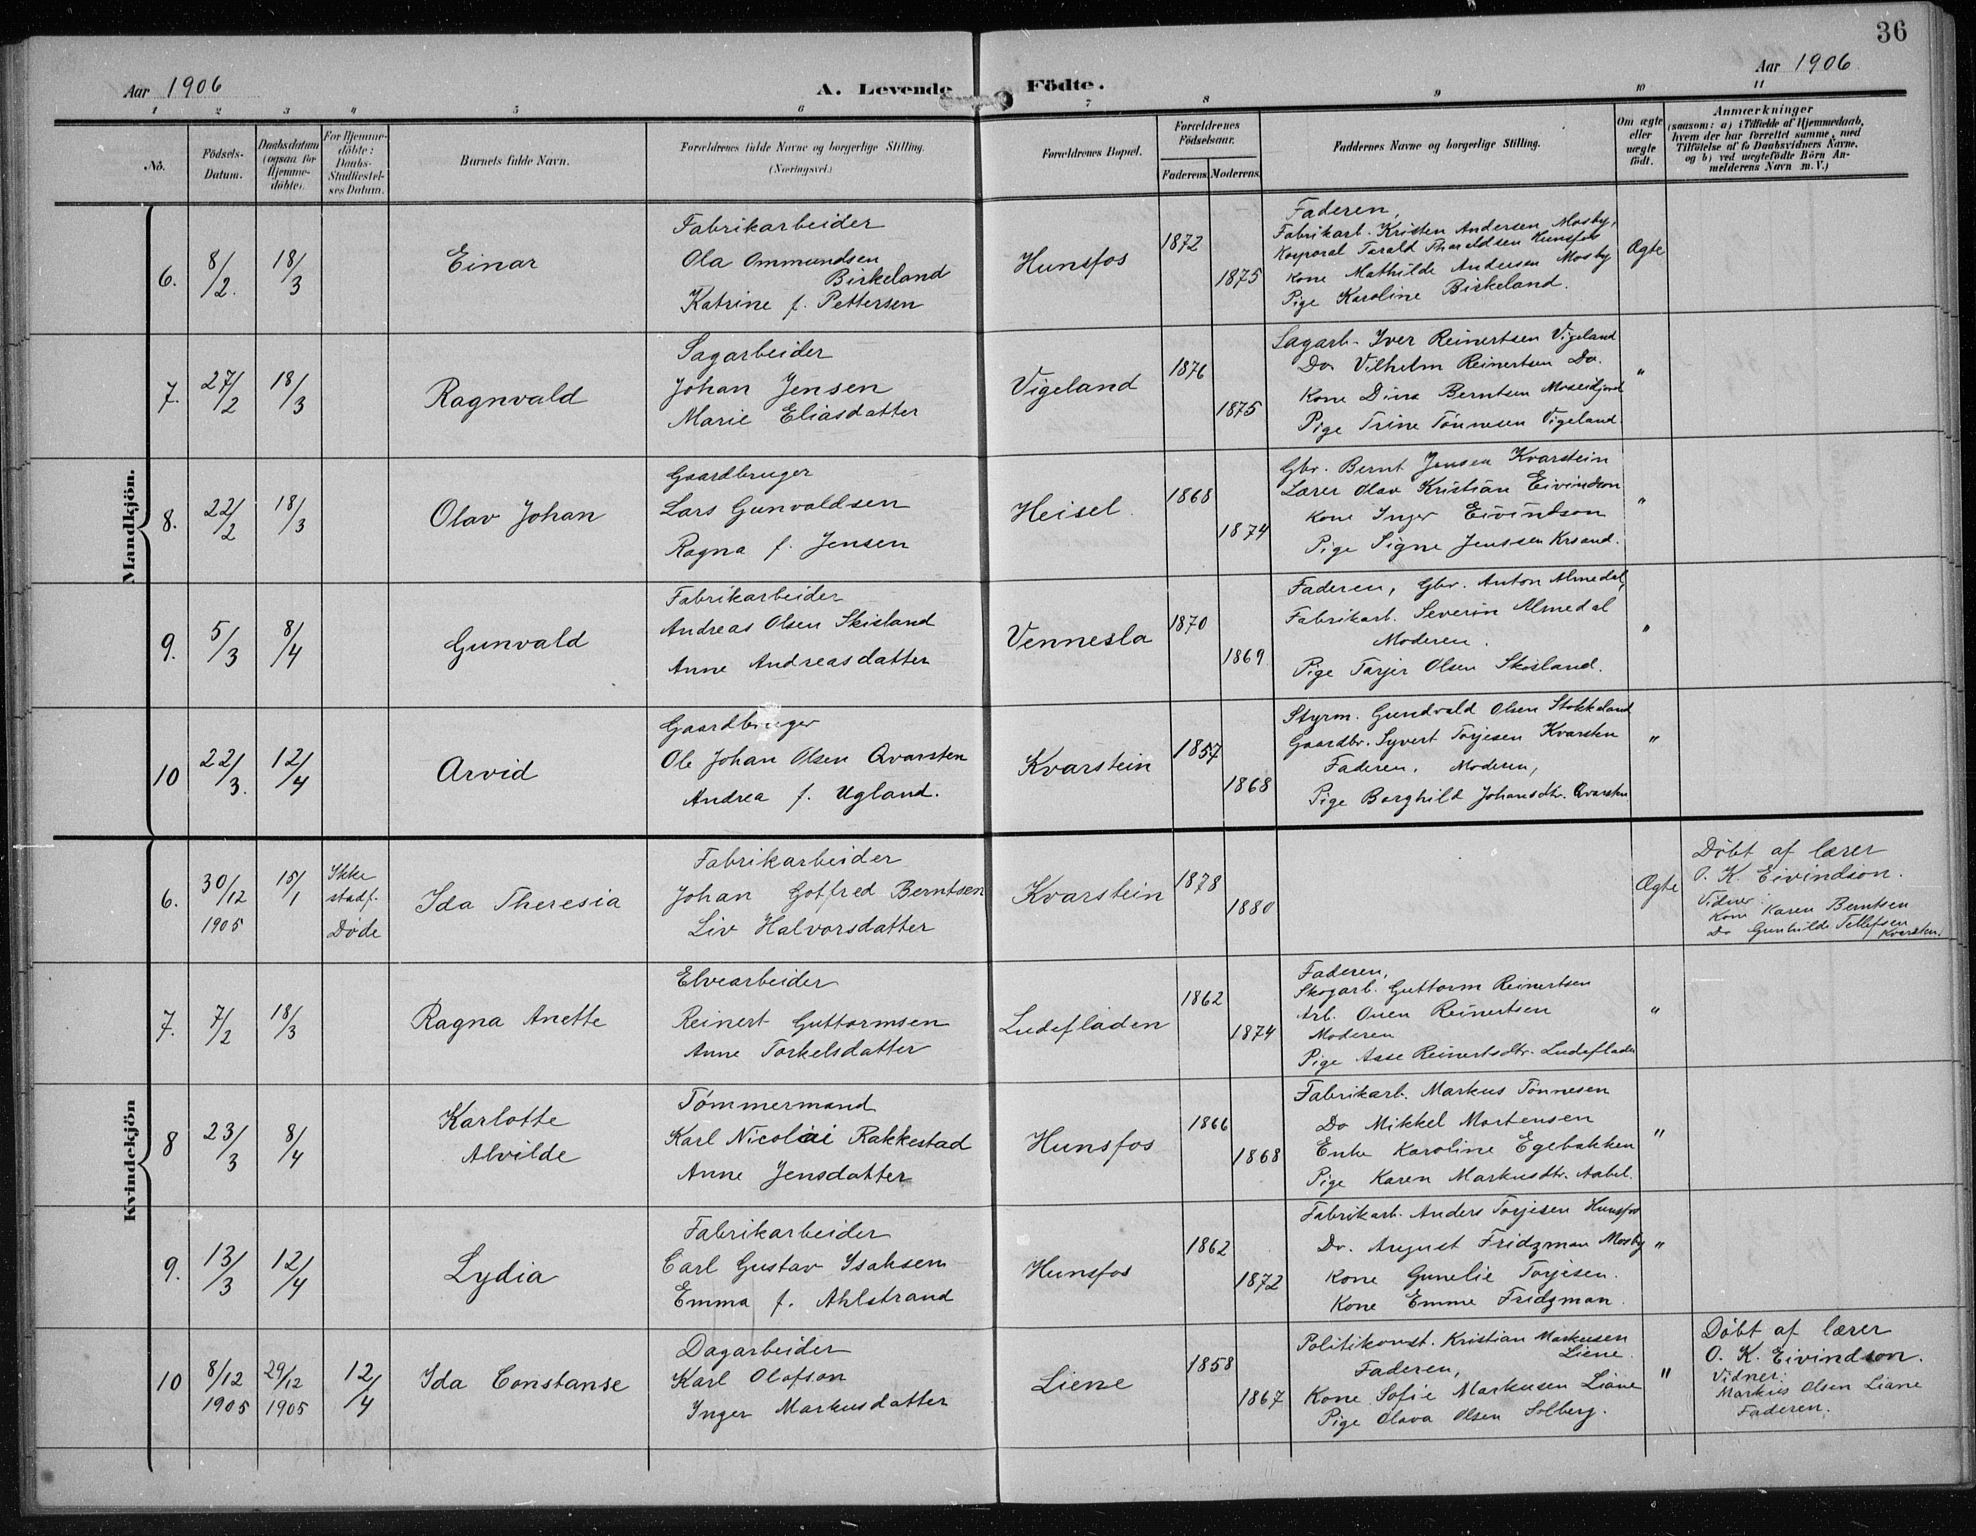 36
Aar 1906
A. Levende Födte.
Aar 1906
1 2 3 4 5 6 7 8 9 10 11
No.
Födsels-
Datum.
Daabsdatum
(ogsaa for
Hjemme-
döbte).
For Hjemme-
döbte:
Daabs-
Stadfæstel-
ses Datum.
Barnets fulde Navn.
Forældrenes fulde Navne og borgerlige Stilling.
(Næringsvei.)
Forældrenes Bopæl.
Forældrenes
Födselsaar.
Faderens. Moderens.
Faddernes Navne og borgerlige Stilling.
Om ægte
eller
uægte
födt.
Anmærkninger
(saasom: a) i Tilfælde af Hjemmedaab,
hvem der har forrettet samme, med
Tilföielse af to Daabsvidners Navne,
og b) ved uægtefödte Börn An-
melderens Navn m. V.)
Mandkjön.
6.
8/2.
18/3
Einar
Fabrikarbeider
Ola Ommundsen
Birkeland
Katrine f. Pettersen
Hunsfos
1872
1875
Faderen,
Fabrikarb. Kristen Andersen Mosby,
Korporal Tarald Tharaldsen Hunsfos
Kone Mathilde Andersen Mosby
Pige Karoline Birkeland.
Ægte
7.
27/2
18/3
Ragnvald
Sagarbeider
Johan Jensen
Marie Eliasdatter
Vigeland
1876
1875
Sagarb. Iver Reinertsen Vigeland
Do Vilhelm Reinertsen Do.
Kone Dina Berntsen Moseidjord
Pige Trine Tönnesen Vigeland.
"
8.
22/2
18/3
Olav Johan
Gaardbruger
Lars Gunvaldsen
Ragna f. Jensen
Heisel.
1868
1874
Gbr. Bernt Jensen Kvarstein
Lærer Olav Kristian Eivindson
Kone Inger Eivindson
Pige Signe Jenssen Krsand.
"
9.
5/3
8/4
Gunvald
Fabrikarbeider
Andreas Olsen Skisland
Anne Andreasdatter
Vennesla
1870
1869
Faderen, Gbr. Anton Almedal,
Fabrikarb. Severin Almedal
Moderen.
Pige Tarjer Olsen Skisland.
"
10
22/3.
12/4
Arvid
Gaardbruger
Ole Johan Olsen Qvarsten
Andrea f. Ugland.
Kvarstein
1857
1868
Styrm. Gundvald Olsen Stokkeland
Gaardbr. Syvert Torjesen Kvarsten
Faderen, Moderen,
Pige Borghild Johansdtr. Qvarsten
"
Kvindekjön
6.
30/12
1905
15/1
Ikke
stadf.
Døde
Ida Theresia
Fabrikarbeider
Johan Gotfred Berntsen
Liv Halvorsdatter
Kvarstein
1878
1880
Ægte
Döbt af lærer
O. K. Eivindson.
Vidner.
Kone Karen Berntsen
Do Gunhilde Tellefsen
Kvarsten.
7.
7/2
18/3
Ragna Anette
Elvearbeider
Reinert Guttormsen
Anne Torkelsdatter
Ludefladen
1862
1874
Faderen,
Skogarb. Guttorm Reinertsen
Arb. Ouen Reinertsen
Moderen
Pige Aase Reinertsdtr. Ludefladen
"
8
23/3
8/4
Karlotte
Alvilde
Tømmermand
Karl Nicolai Rakkestad
Anne Jensdatter
Hunsfos
1866
1868
Fabrikarb. Markus Tönnesen
Do Mikkel Mortensen
Enke Karoline Egebakken
Pige Karen Markusdtr. Aabel.
"
9.
13/3
12/4
Lydia
Fabrikarbeider
Carl Gustav Isaksen
Emma f. Ahlstrand
Hunsfos
1862
1872
Fabrikarb. Anders Torjesen Hunsfos
Do. August Fridzman Mosby
Kone Gunelie Torjesen.
Kone Emme Fridzman.
"
10
8/12
1905
29/12
1905
12/4
Ida Constanse
Dagarbeider
Karl Olofson
Inger Markusdatter
Liene
1858
1867
Politikonst. Kristian Markusen
Liene.
Faderen,
Kone Sofie Markusen Liane
Pige Olava Olsen Solberg.
"
Döbt af lærer
O. K. Eivindson.
Vidner:
Markus Olsen Liane
Faderen.